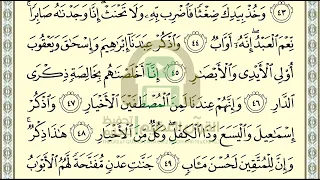 ٤٣ وَخُذْ بِيَدِكَ ضِغْثًا فَاضْرِب بِّهِ وَلَا تَحْنَثْ إِنَّا وَجَدْنَاهُ صَابِرًا
نِّعْمَ الْعَبْدُ إِنَّهُ أَوَّابٌ ٤٤ وَاذْكُرْ عِبَادَنَا إِبْرَاهِيمَ وَإِسْحَاقَ وَيَعْقُوبَ
أُولِي الْأَيْدِي وَالْأَبْصَارِ ٤٥ إِنَّا أَخْلَصْنَاهُم بِخَالِصَةٍ ذِكْرَى
الدَّارِ ٤٦ وَإِنَّهُمْ عِندَنَا لَمِنَ الْمُصْطَفَيْنَ الْأَخْيَارِ ٤٧ وَاذْكُرْ
إِسْمَاعِيلَ وَالْيَسَعَ وَذَا الْكِفْلِ وَكُلٌّ مِّنَ الْأَخْيَارِ ٤٨ هَٰذَا ذِكْرٌ
وَإِنَّ لِلْمُتَّقِينَ لَحُسْنَ مَآبٍ ٤٩ جَنَّاتِ عَدْنٍ مُّفَتَّحَةً لَّهُمُ الْأَبْوَابُ